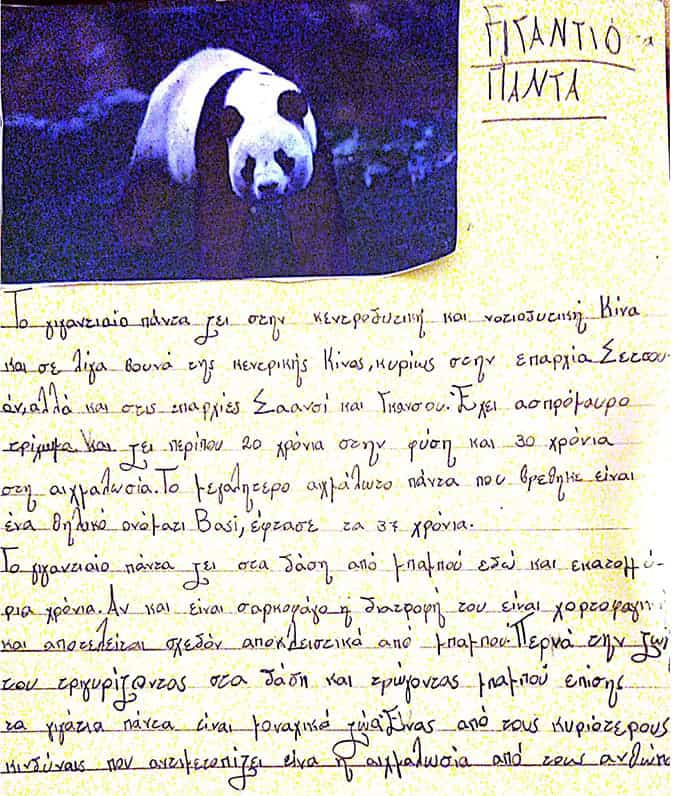 ΓΙΓΑΝΤΙΟ
ΠΑΝΤΑ
Το γιγαντιαίο πάντα ζει στην κεντροδυτική και νοτιοδυτική Κίνα
και σε λίγα βουνά της κεντρικής Κίνας, κυρίως στην επαρχία Σετσου-
άν, αλλά και στις επαρχίες Σαανσί και Γκανσου. Έχει ασπρόμαυρο
τρίχωμα και ζει περίπου 20 χρόνια στην φύση και 30 χρόνια
στη αιχμαλωσία. Το μεγαλητερο αιχμάλωτο πάντα που βρεθηκε είναι
ένα θηλυκό ονόματι Basi, έφτασε τα 37 χρόνια.
Το γιγαντιαίο πάντα ζει στα δάση από μπαμπού εδώ και εκατομμύ-
ρια χρόνια. Αν και είναι σαρκοφάγο η διατροφή του είναι
και αποτελείται σχεδόν αποκλειστικά από μπαμπου. Περνά την ζωή
του τριγυρίζοντας στα δάση και τρώγοντας μπαμπού επίσης
τα γιγάτια πάντα είναι μοναχικά ζώα. Ένας από τους κυριοτερους
κινδύναις που αντιμετοπίζει είνα η αιχμαλωσία από τους